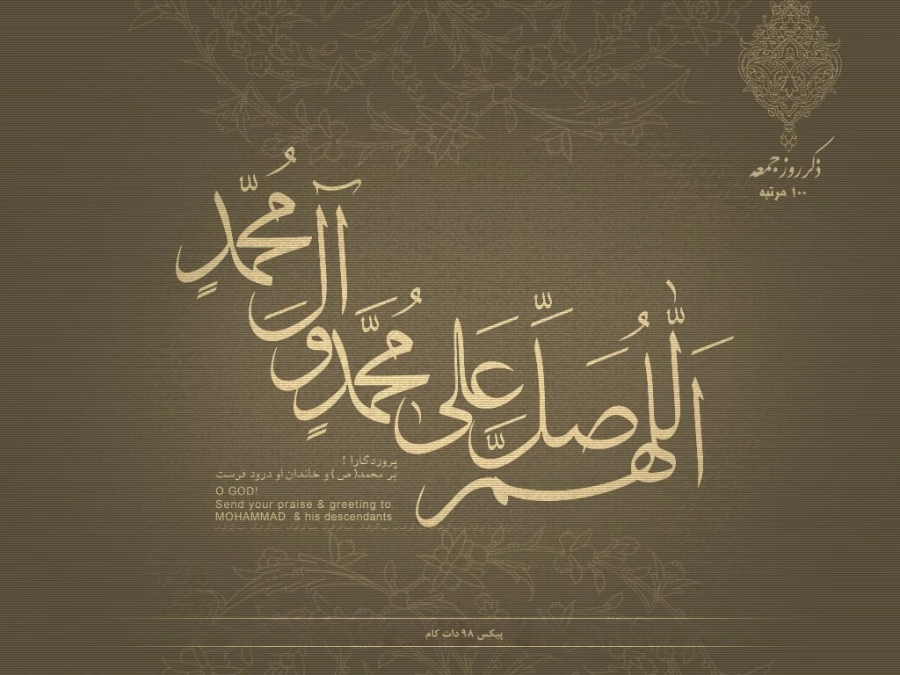 ذکر روز جمعه
۱۰۰ مرتبه
اَللّٰهُمَّ صَلِّ عَلی مُحَمَّدٍ وَ آلِ مُحَمَّدٍ
پروردگارا !
بر محمد(ص) و خاندان او درود فرست
O GOD!
Send your praise & greeting to
MOHAMMAD & his descendants
پیکس ۹۸ دات کام